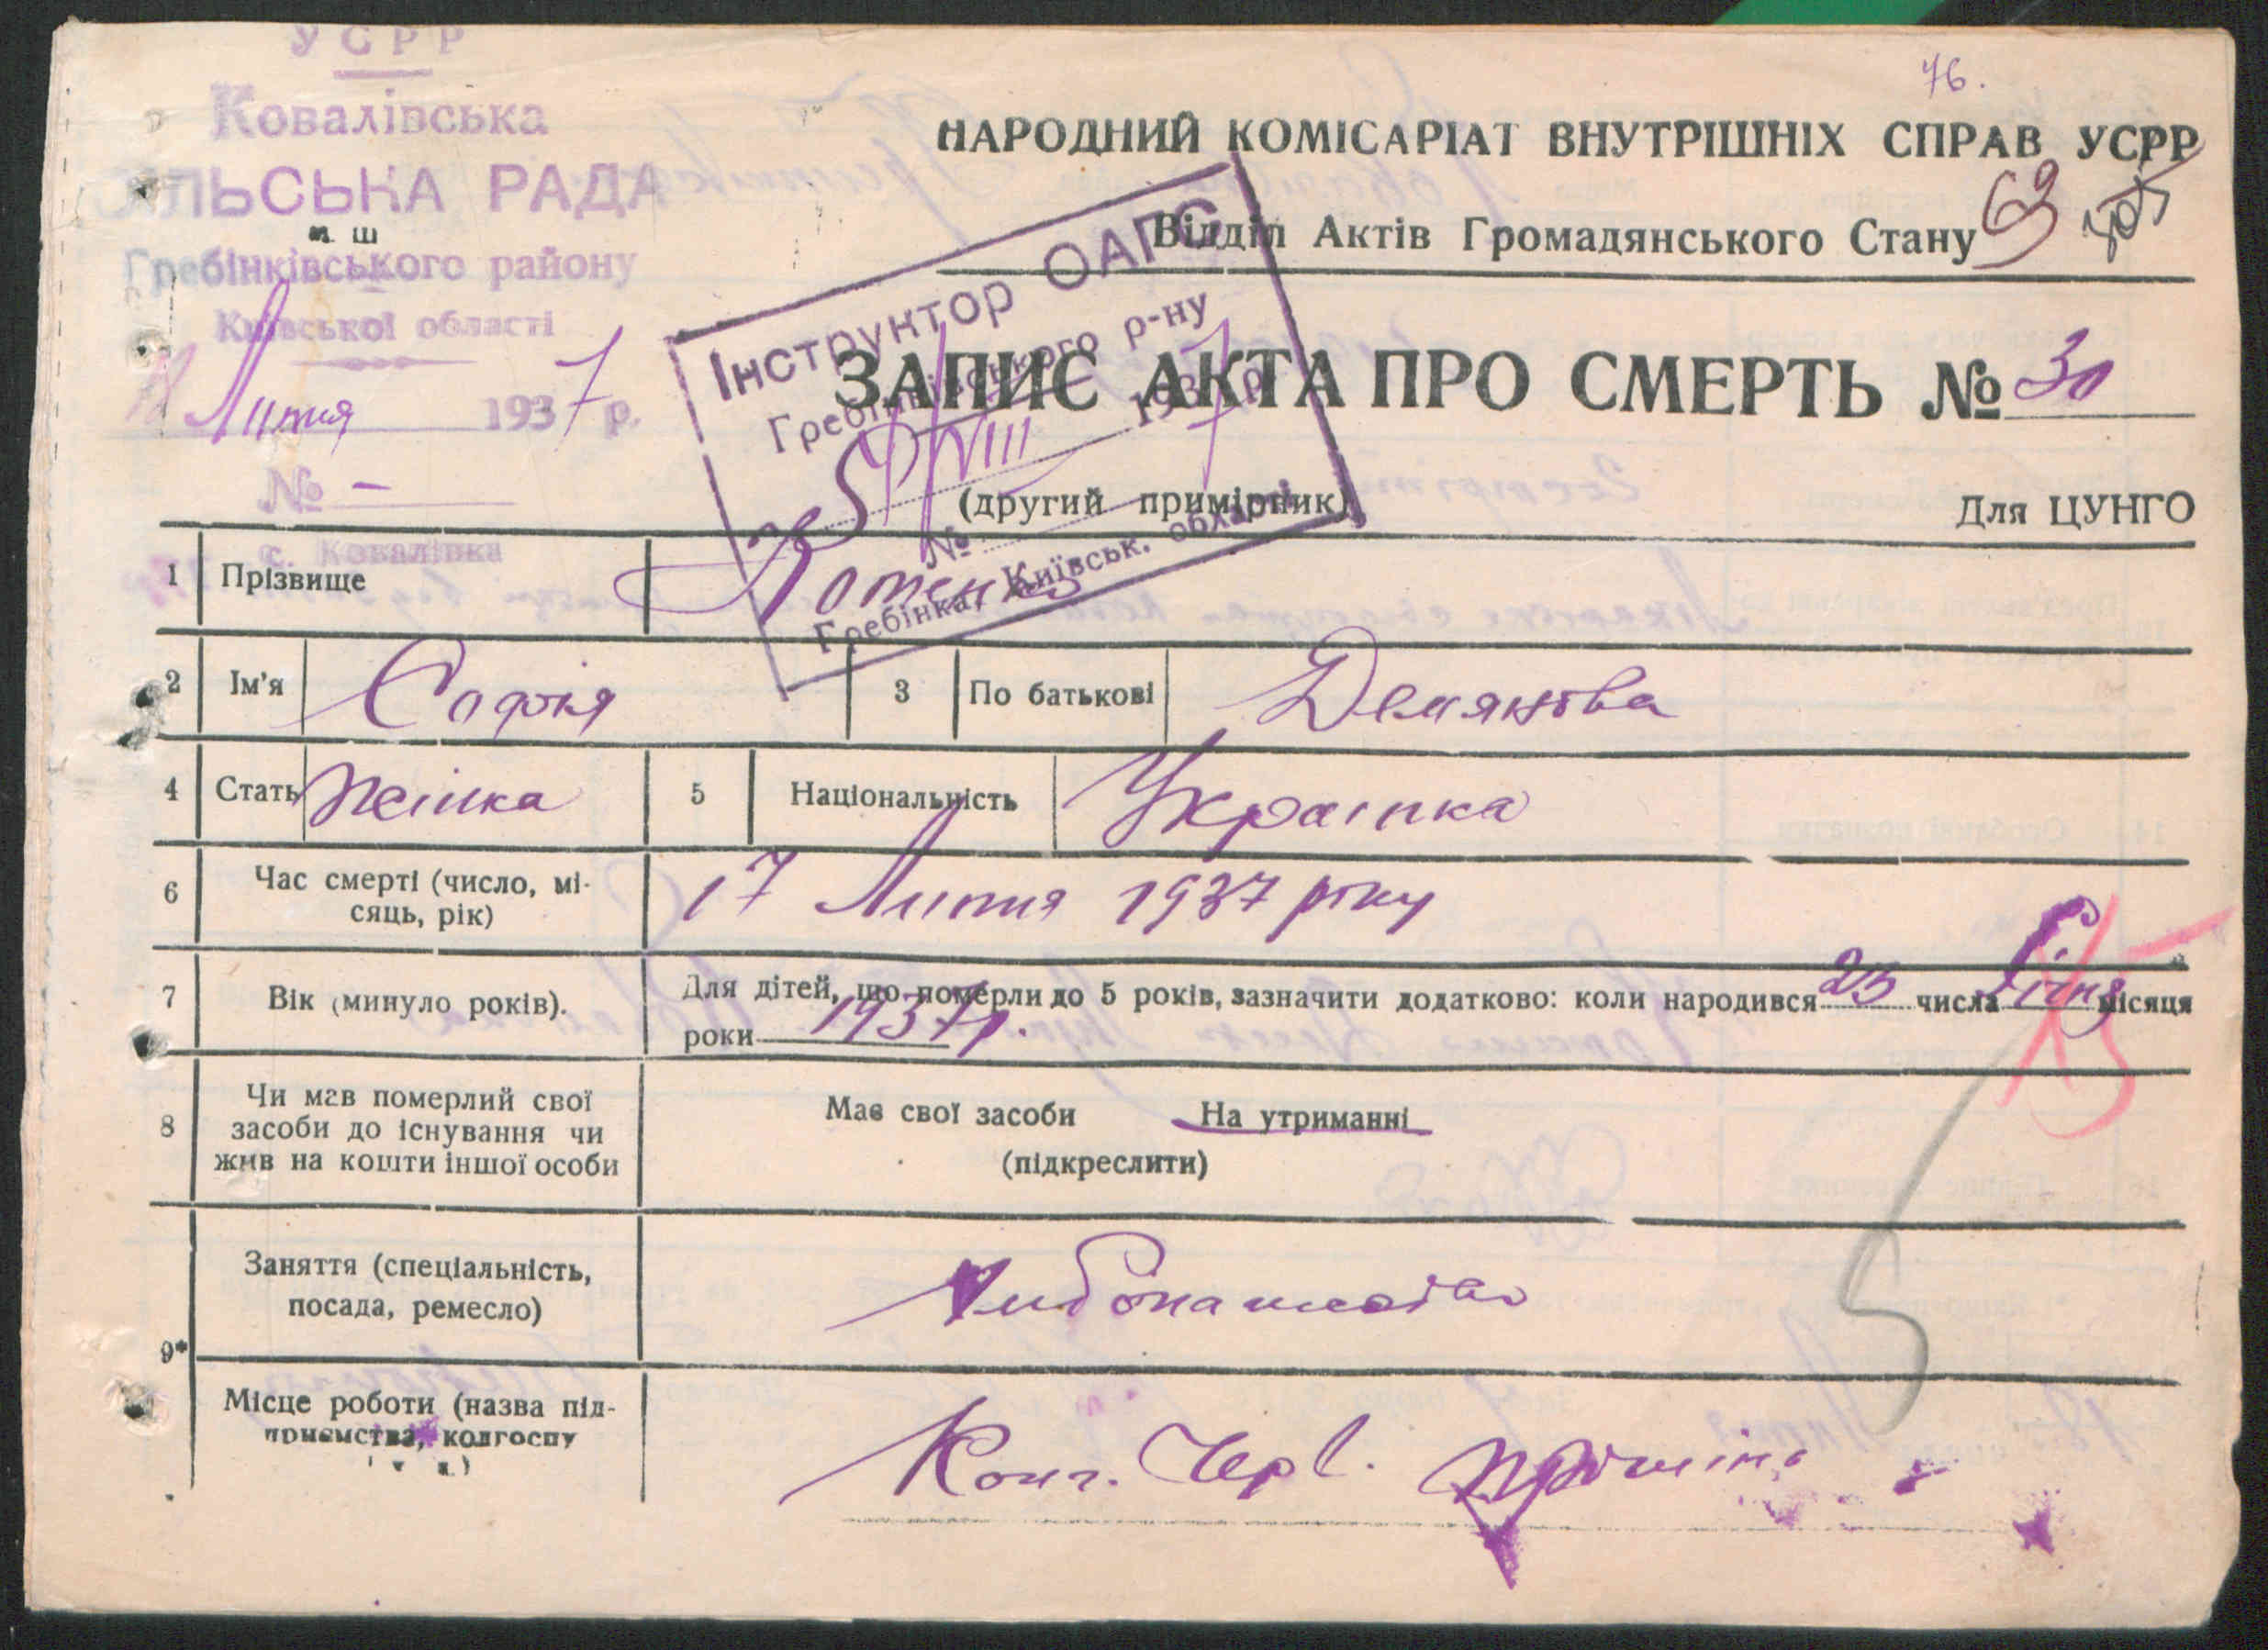 УСРР
Ковалівська
СІЛЬСЬКА РАДА
Гребінківського району
Київської області
18 Липня 1937 р.
№ -
с. Ковалівка
76.
НАРОДНИЙ КОМІСАРІАТ ВНУТРІШНІХ СПРАВ УСРР
Відділ Актів Громадянського Стану
69
Інструктор ОАГС
Гребінківського р-ну
VIII 1937 р.
№
Гребінка, Київськ. області
ЗАПИС АКТА ПРО СМЕРТЬ № 30
(другий примірник)
Для ЦУНГО
1 Прізвище Котенко
2 Ім'я Софія 3 По батькові Демянівна
4 Стать Жінка 5 Національність Українка
6 Час смерті (число, мі-
сяць, рік) 17 Липня 1937 року
7 Вік (минуло років). Для дітей, що померли до 5 років, зазначити додатково: коли народився 23 числа Січня місяця
роки 1937 р.
8 Чи мав померлий свої
засоби до існування чи
жив на кошти іншої особи
Має свої засоби На утриманні
(підкреслити)
9*
Заняття (спеціальність,
посада, ремесло)
Місце роботи (назва під-
приємства, колгоспу
Черв.
5